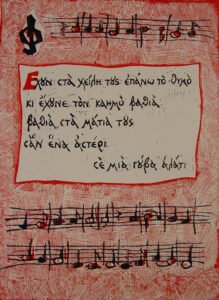 Ἔχουν στὰ χείλη τους ἐπάνω τὸ θυμὸ
κι ἔχουνε τὸν καημὸ βαθιὰ
βαθιὰ στὰ μάτια τους
σὰν ἕνα ἀστέρι
σὲ μιὰ γούβα ἁλάτι